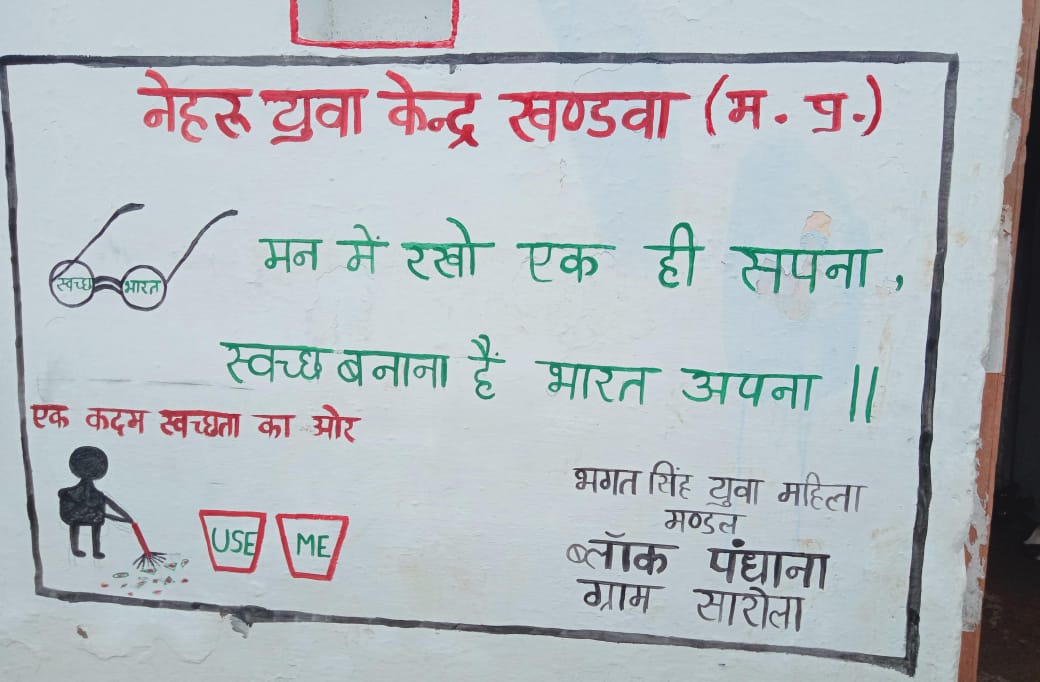 नेहरू युवा केन्द्र खण्डवा (म. प्र.)
स्वच्छ भारत
मन में रखो एक ही सपना,
स्वच्छ बनाना हैं भारत अपना ||
एक कदम स्वच्छता का ओर
USE ME
भगत सिंह युवा महिला
मण्डल
ब्लॉक पंधाना
ग्राम सारोला